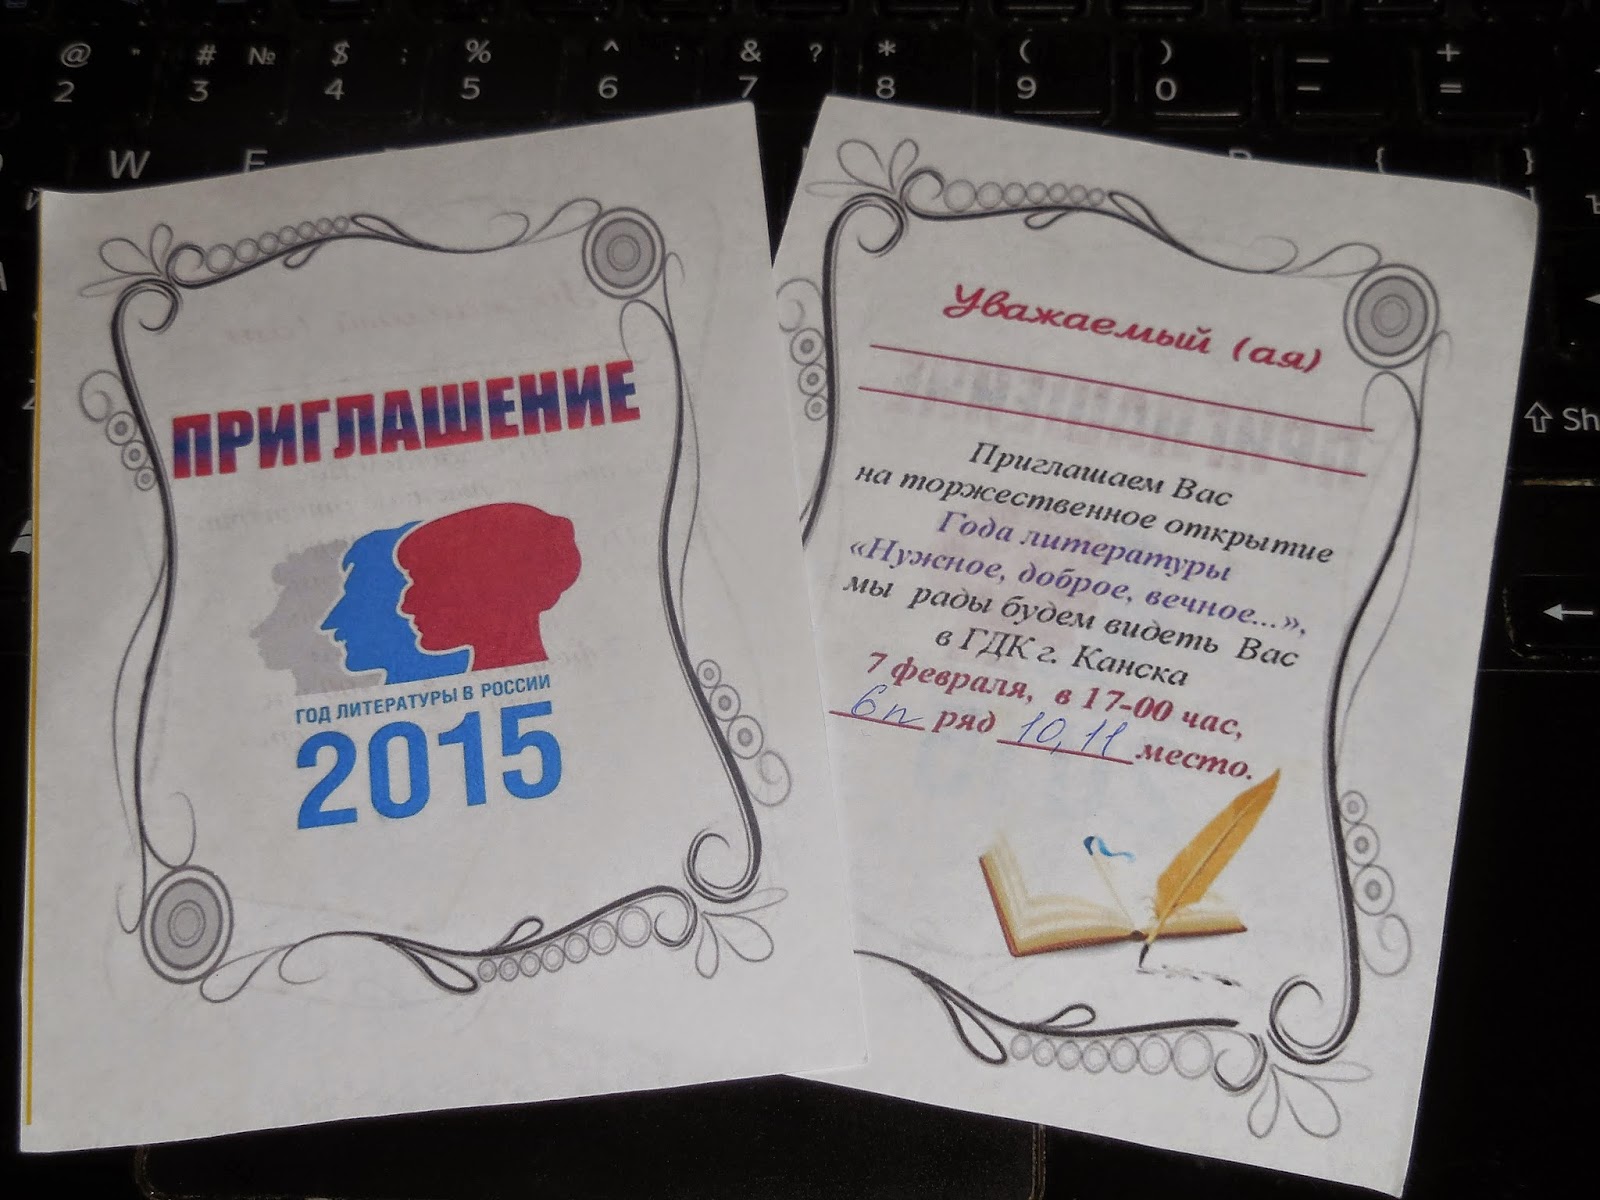 @ " # № $ ; % ^ : & ? * ( ) — +
2 3 4 5 6 7 8 9 0 – =
W E { }
Sh
ПРИГЛАШЕНИЕ
ГОД ЛИТЕРАТУРЫ В РОССИИ
2015
Уважаемый (ая)
Приглашаем Вас
на торжественное открытие
Года литературы
«Нужное, доброе, вечное...»,
мы рады будем видеть Вас
в ГДК г. Канска
7 февраля, в 17-00 час,
6п ряд 10, 11 место.